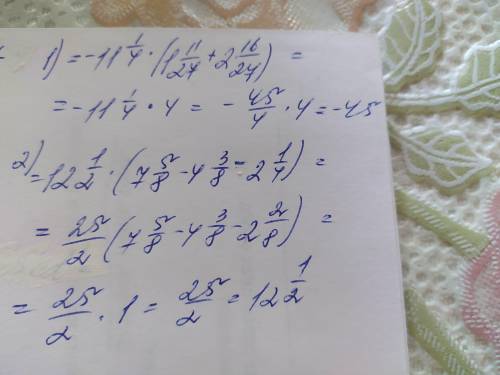 1) = -11 1/4 · (1 11/27 + 2 16/27) =
= -11 1/4 · 4 = - 45/4 · 4 = -45
2) = 12 1/2 · (7 5/8 - 4 3/8 - 2 1/4) =
= 25/2 (7 5/8 - 4 3/8 - 2 2/8) =
= 25/2 · 1 = 25/2 = 12 1/2